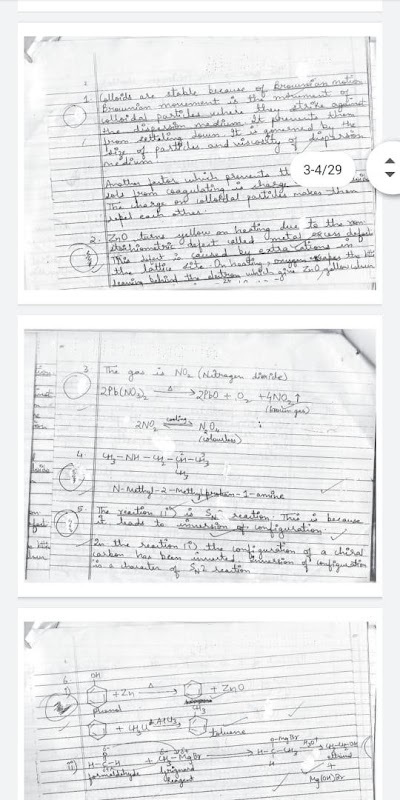 1. Colloids are stable because of Brownian motion
Brownian movement is the movement of
colloidal particles where they strike against
the dispersion medium. It prevents them
from settling down. It is governed by the
size of particles and viscosity of dispersion
medium.
Another factor which prevents
sols from coagulating is charge
The charge on colloidal particles makes them
repel each other.
3-4/29
2. ZnO turns yellow on heating due to the non
stoichiometric defect called metal excess defect
This defect is caused by extra cations in
the lattice site. On heating, oxygen
leaving behind the electron which give ZnO yellow
3 The gas is NO2 (Nitrogen dioxide)
2Pb(NO3)2 Δ→ 2PbO + O2 + 4NO2↑
(brown gas)
2NO2 cooling⇌ N2O4
(colourless)
4. CH3-NH-CH2-CH-CH3
CH3
N-Methyl-2-methylpropan-1-amine
5. The reaction is SN2 reaction. This is because
it leads to inversion of configuration.
In the reaction (i) the configuration of a chiral
carbon has been inverted. Inversion of configuration
is a character of SN2 reaction
6.
i) OH
+ Zn Δ→ + ZnO
phenol
CH3
+ CH3Cl AlCl3
toluene
ii) H-C-H + CH3-MgBr → H-C-CH3 H3O+→ CH3-CH2-OH
O-MgBr
H
formaldehyde
Grignard
reagent
ethanol
+
Mg(OH)Br